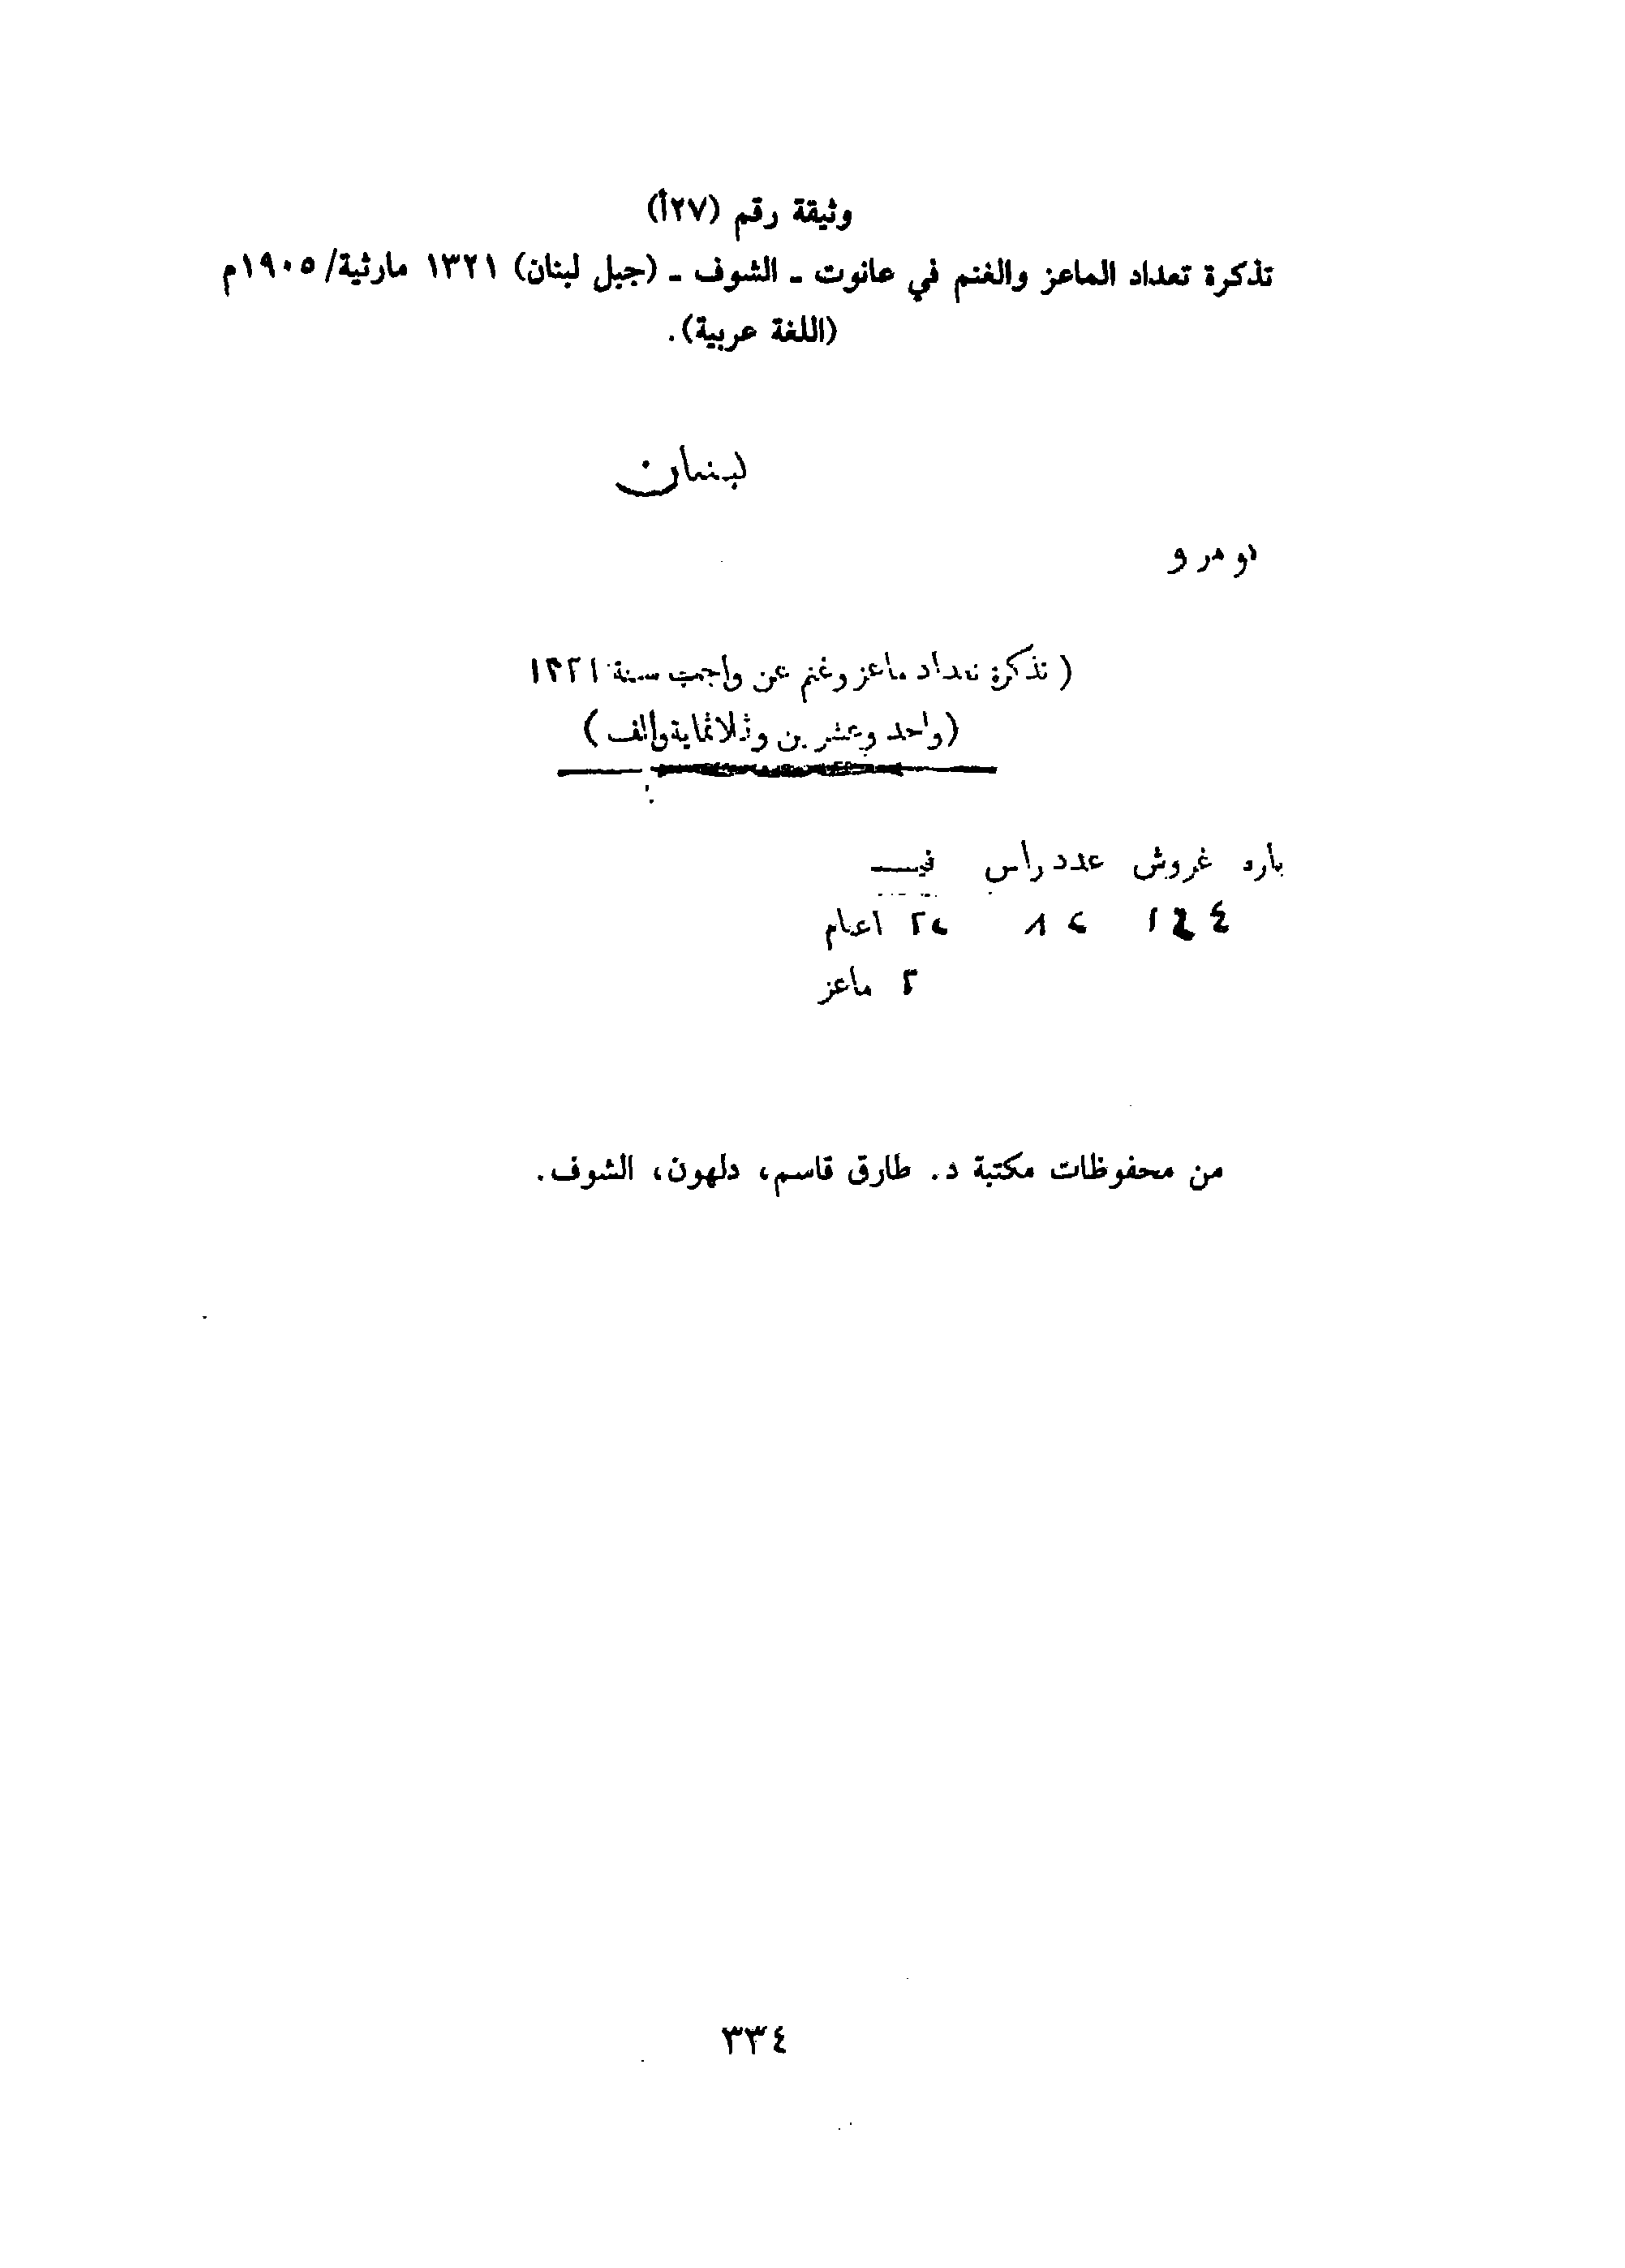 وثيقة رقم (٢٧أ)
تذكرة تعداد الماعز والغنم في عانوت ـ الشوف ـ (جبل لبنان) ١٣٢١ مارثية/ ١٩٠٥م
(اللغة عربية).
لبنان
نومرو
( تذكرة تعداد ماعز وغنم عن واجب سنة ١٣٢١
(واحد وعشرين وثلاثماية والف)
باره غروش عدد راس فيــ
اغنام
٢ ماعز
من محفوظات مكتبة د. طارق قاسم، دلهون، الشوف.
٣٣٤